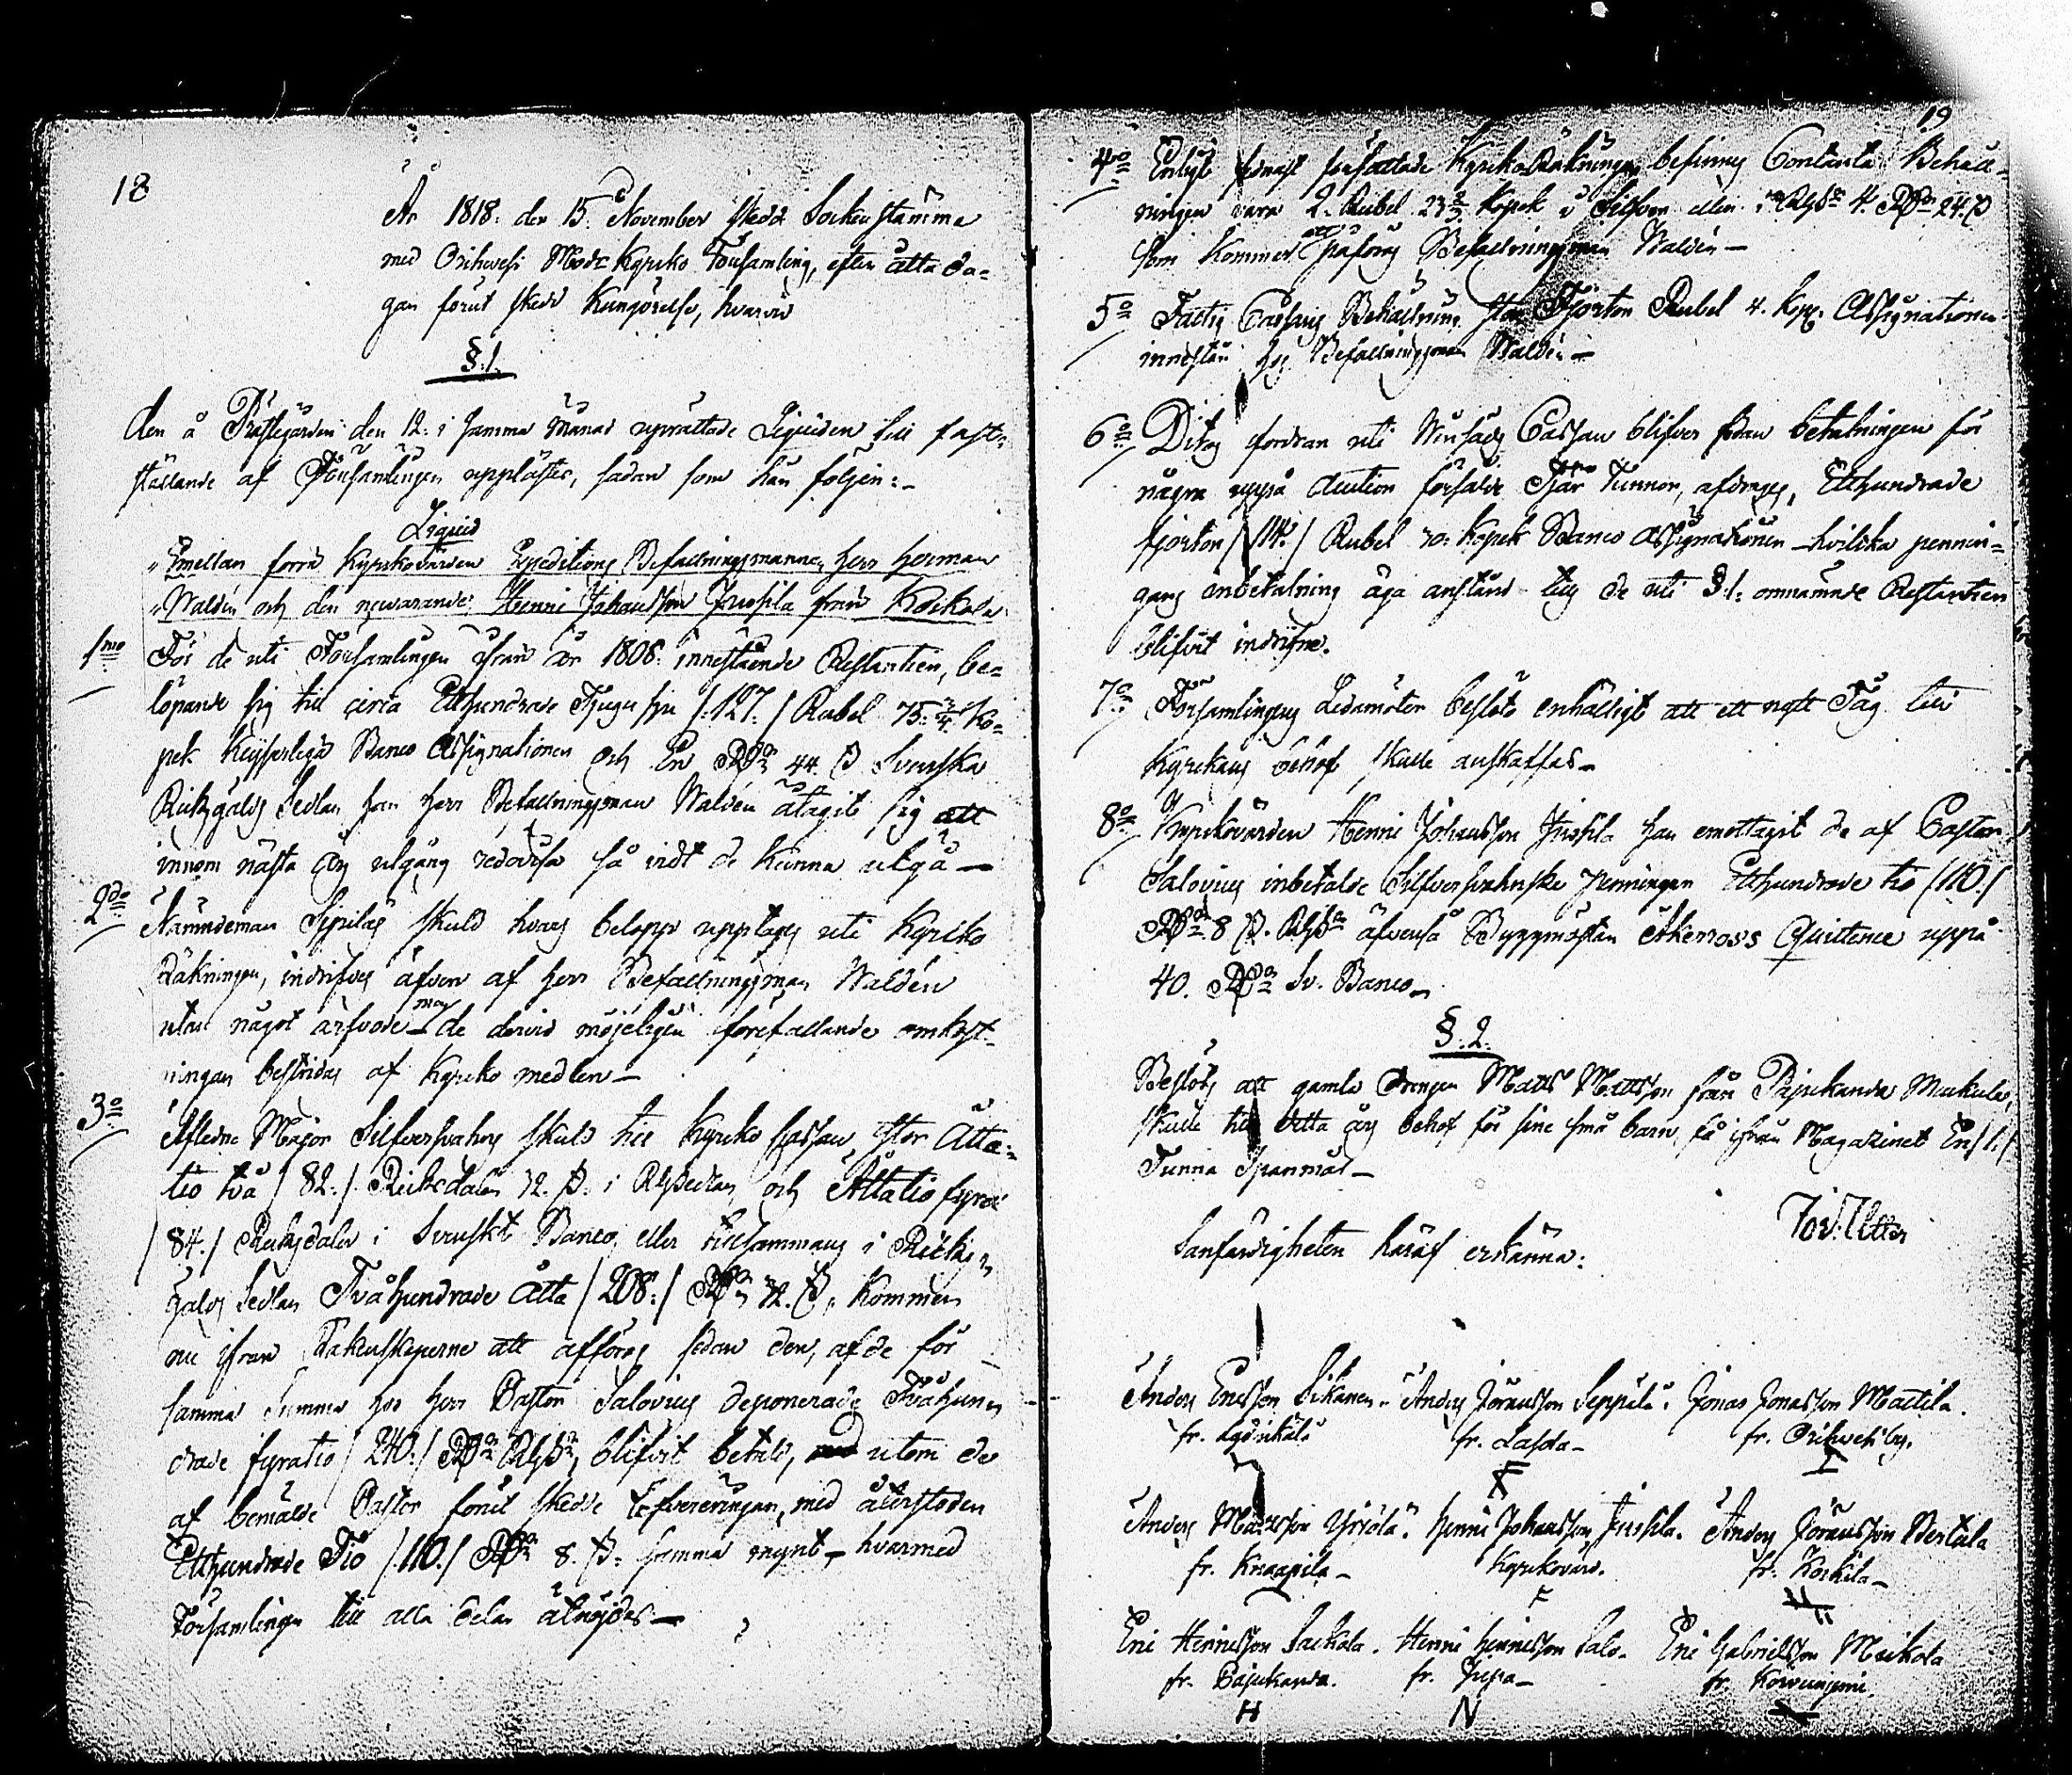 18
År 1818. den 15. November skedde Sockenstämma
med Orihvesi Moder Kyrko Församling, efter åtta da-
gar förut skedd Kungörelse, hvarvid
§.1.
den å Prästgården den 12. i samma Månad uprättade Liquiden till fast-
ställande af Församlingen upplästes, sådan som han följer:-
Liquid
"Emellan förra Kyrkovärden Expeditions Befallningsmannen Herr Herman
"Waldén och den nuvarande Henric Johansson Jussila från Koskela.
1mo För de uti Församlingen ifrån år 1808. innestående Restantier, be-
löpande sig till circa Etthundrade Tjugu sju /:127:/ Rubel 75 3/4 Ko-
pek Keijserliga Banco Assignationer och En Rdr 44 ß Svenska
Riksgälds Sedlar, har Herr Befallningsman Waldén åtagit sig att
innom nästa års utgång redovisa så vidt de kunna utgå —
2do Nämndeman Seppiläs skuld hvars belopp upptages uti Kyrko
Räkningen, indrifves äfven af Herr Befallningsman Waldén
utan något arfvode — men de dervid möjeligen förefallande omkost-
ningar bestridas af Kyrko medlen —
3o Afledne Major Silfversvahns skuld till Kyrko Cassan, stor Åtta-
tio två /82:/ Riksdaler 32. ß. i RgsSedlar och Åttatio fyra
/84:/ Riksdaler i Svenskt Banco, eller tillsammans i Riks-
gälds Sedlar Tvåhundrade åtta /208:/ Rdr 32. ß, kommer
nu ifrån Räkenskaperne att afföras sedan den, af de för
samma Summa hos Herr Pastor Salovius deponerade Tvåhun-
drade fyratio /240:/ Rdr RgsSdr, blifvit betald, utom de
af bemälde Pastor förut skedde Lefvereringar, med återstoden
Etthundrade Tio /:110:/ Rdr 8. ß. samma mynt — hvarmed
Församlingen till alla delar åtnöjdes —
19
4o Enligt sednast författade KyrkoRäkningen befinnes Contanta Behåll-
ningen vara 2. Rubel 23 Kopek i Silfver eller Rgsdr 4. Rdr 24. ß
Som kommer att påföras Befallningsman Waldén —
5o Fattig Cassans Behållning stor Fjorton Rubel 4. Kop. Assignationer
innestår hos Befallningsman Waldén —
6o Ditos fordran uti Winsads Cassan blifver sedan betalningen för
några uppå Auction försålde Tjär Tunnor, afdrages, Etthundrade
fjorton /114:/ Rubel 70. Kopek Banco Assignationer — hvilka pennin-
gars inbetalning äga anstånd tills de uti §1. omnämnde Restantier
blifvit indrifne.
7o Församlingens Ledamöter beslöto enhälligt att ett nytt Tåg till
Kyrkans behof skulle anskaffas —
8o Kyrkovärden Henric Johansson Jussila har emottagit de af Pastor
Salovius inbetalde Silfversvahnske penningar Etthundrade tio /110:/
Rdr 8 ß. RgSdr äfvensom Byggmästar Åkerross Quittence uppå
40. Rdr Sv. Banco —
§.2.
Beslöts att gamla drängen Matts Mattsson från Pajukanda Mukula,
skulle till detta års behof för sine små barn, få ifrån Magazinet En /1:/
Tunna Spanmål —
Sanfärdigheten häraf erkänna:
Anders Ericsson Sikanen. Anders Jöransson Seppilä. Jonas Jonasson Mattila.
fr. Lyytikälä fr. Lasola — fr. Orihvesi by.
Anders Mattsson Yrjölä. Henric Johansson Jussila. Anders Jöransson Bertula
fr. Knaapila — Kyrkovärd. fr. Koskila —
Eric Henricsson Lackola. Henric Henricsson Salo. Eric Gabrielsson Mukola
fr. Pajukanda. fr. Jupa — fr.
H N